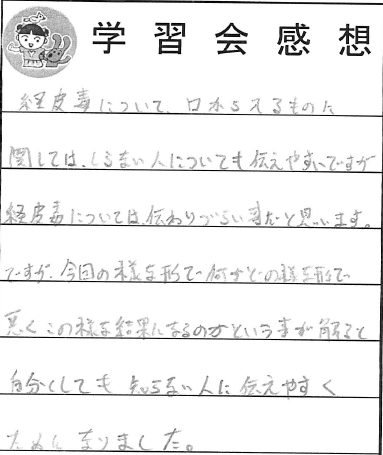 学習会感想
経皮毒について、口から入るものに
関しては、しらない人についても伝えやすいですが
経皮毒については、伝わりづらい事だと思います。
ですが、今回の様な形で何がどの様な形で
悪くこの様な結果になるのかという事が解ると
自分としても知らない人に伝えやすく
ためになりました。